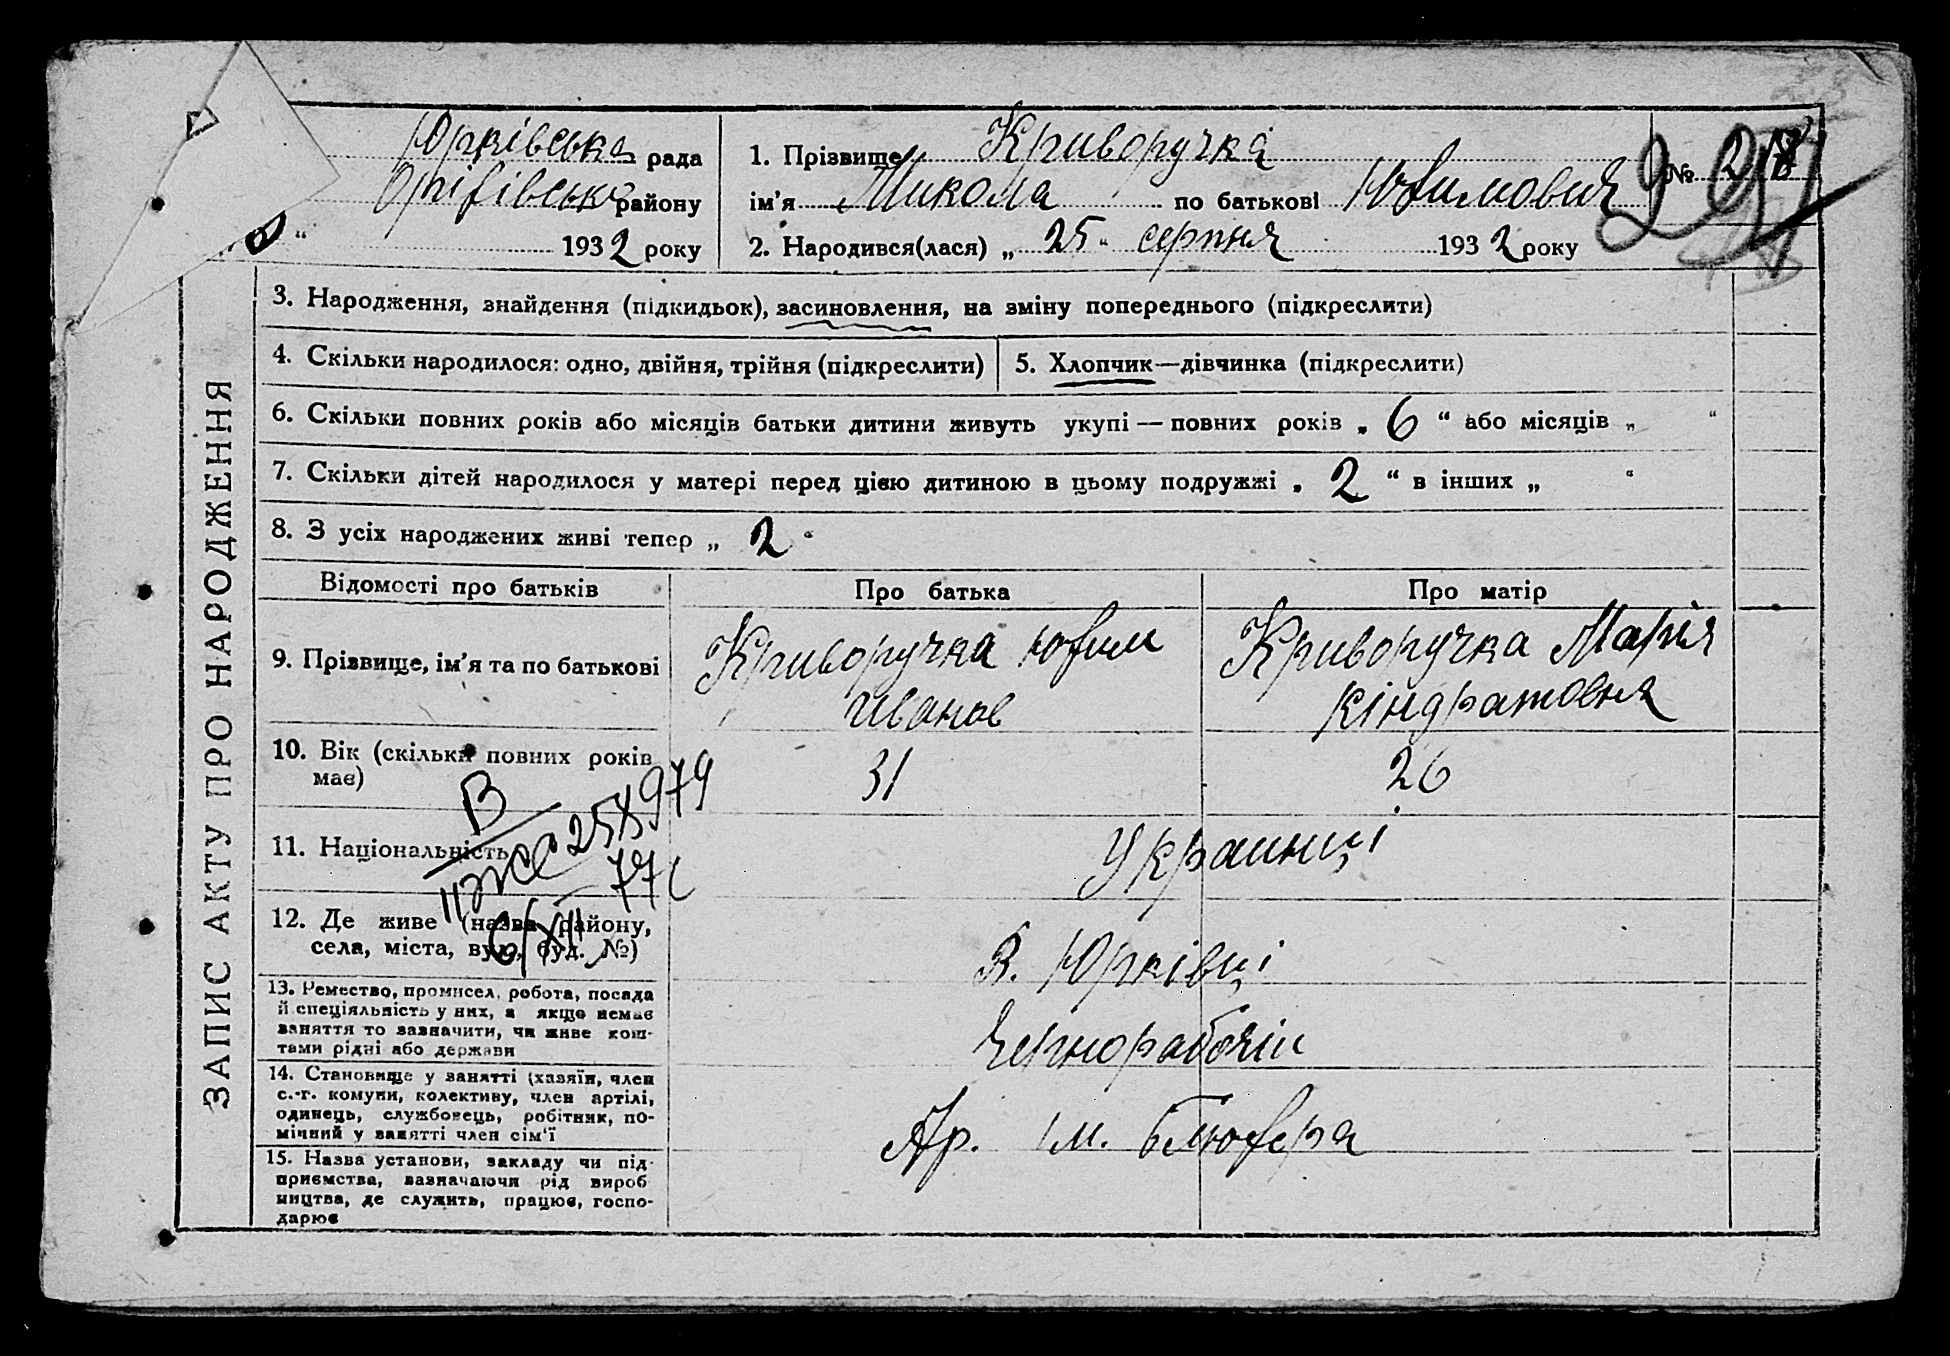 ЗАПИС АКТУ ПРО НАРОДЖЕННЯ
Юрківська рада
району
" 1932 року
1. Прізвище Криворучка
ім'я Микола по батькові Юхимович
№
2. Народився(лася) „ 25 " серпня 1932 року
3. Народження, знайдення (підкидьок), засиновлення, на зміну попереднього (підкреслити)
4. Скільки народилося: одно, двійня, трійня (підкреслити)
5. Хлопчик—дівчинка (підкреслити)
6. Скільки повних років або місяців батьки дитини живуть укупі — повних років „ 6 " або місяців „ "
7. Скільки дітей народилося у матері перед цією дитиною в цьому подружжі „ 2 " в інших „ "
8. З усіх народжених живі тепер „ 2 "
Відомості про батьків Про батька Про матір
9. Прізвище, ім'я та по батькові
Криворучка Юхим
Иванов
Криворучка Марія
Кіндратовня
10. Вік (скільки повних років
має)
31
26
11. Національність
Украинці
12. Де живе (назва району,
села, міста, вул., буд. №)
В. Юрківці
13. Ремество, промисел, робота, посада
й спеціяльність у них, а якщо немає
заняття то зазначити, чи живе кош-
тами рідні або держави
Чернорабочіи
14. Становище у занятті (хазяїн, член
с.-г. комуни, колективу, член артілі,
одинець, службовець, робітник, по-
мічний у занятті член сім'ї
Ар. їм. Блюхера
15. Назва установи, закладу чи під-
приємства, зазначаючи рід вироб
ництва, де служить, працює, госпо-
дарює